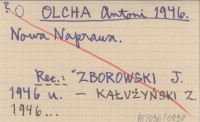 ? OLCHA Antoni 1946.
Nowa Naprawa.
Rec.: ZBOROWSKI J.
1946 u. — KAŁUŻYŃSKI Z.
1946...